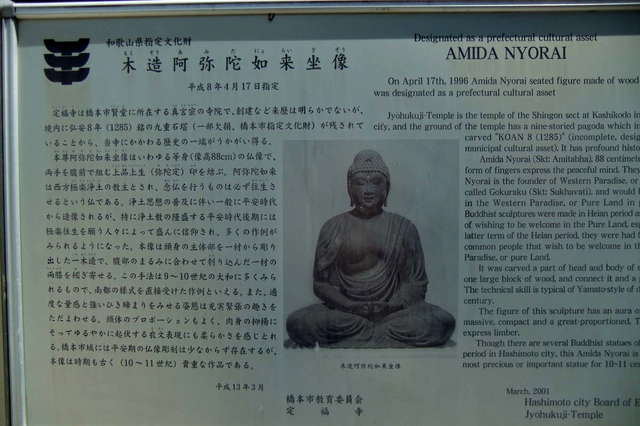 和歌山県指定文化財
もくぞうあみだにょらいざぞう
木造阿弥陀如来坐像
平成8年4月17日指定
定福寺は橋本市賢堂に所在する真言宗の寺院で、創建など来歴は明らかでないが、
境内に弘安8年(1285)銘の九重石塔(一部欠損、橋本市指定文化財)が残されて
いることから、当寺にかかわる歴史の一端がうかがい得る。
本尊阿弥陀如来坐像はいわゆる等身(像高88cm)の仏像で、
両手を腹前で組む上品上生(弥陀定)印を結ぶ。阿弥陀如来
は西方極楽浄土の教主とされ、念仏を行うものは必ず往生さ
せるという仏である。浄土思想の普及に伴い一般に平安時代
から造像されるが、特に浄土教の隆盛する平安時代後期には
極楽往生を願う人々によって盛んに信仰され、多くの作例が
みられるようになった。本像は頭身の主体部を一材から彫り
出した一木造で、腹部のまるみに合わせて刳り込んだ一材の
両膝を横き寄せる。この手法は9〜10世紀の大和に多くみら
れるもので、南都の様式を直接受けた作例といえる。また、適
度な量感と強いひき締まりをみせる姿態は充実緊張の趣きを
ただよわせる。頭体のプロポーションもよく、肉身の抑揚に
そってゆるやかに起伏する衣文表現にも柔らかさを感じとれ
る。橋本市域には平安期の仏像彫刻は少なからず存在するが、
本像は時期も古く(10〜11世紀)貴重な作品である。
平成13年3月
橋本市教育委員会
定福寺
木造阿弥陀如来坐像
Designated as a prefectural cultural asset
AMIDA NYORAI
On April 17th, 1996 Amida Nyorai seated figure made of wood
was designated as a prefectural cultural asset
Jyohukuji-Temple is the temple of the Shingon sect at Kashikodo in
city, and the ground of the temple has a nine-storied pagoda which i
carved "KOAN 8 (1285)" (incomplete, desig
municipal cultural asset). It has profound histo
Amida Nyorai (Skt: Amitabha), 88 centimete
form of fingers express the peaceful mind. They
Nyorai is the founder of Western Paradise, or
called Gokuraku (Skt: Sukhavati), and would h
in the Western Paradise, or Pure Land in
Buddhist sculptures were made in Heian period a
of wishing to be welcome in the Pure Land, esp
latter term of the Heian period, they were had t
common people that wish to be welcome in th
Paradise, or pure Land.
It was carved a part of head and body of
one large block of wood, and connect it and a
The technical skill is typical of Yamato-style of
century.
The figure of this sculpture has an aura o
massive, compact and a great-proportioned. T
express limber.
Though there are several Buddhist statues of
period in Hashimoto city, this Amida Nyorai is
most precious or important statue for 10-11 cen
March, 2001
Hashimoto city Board of E
Jyohukuji-Temple